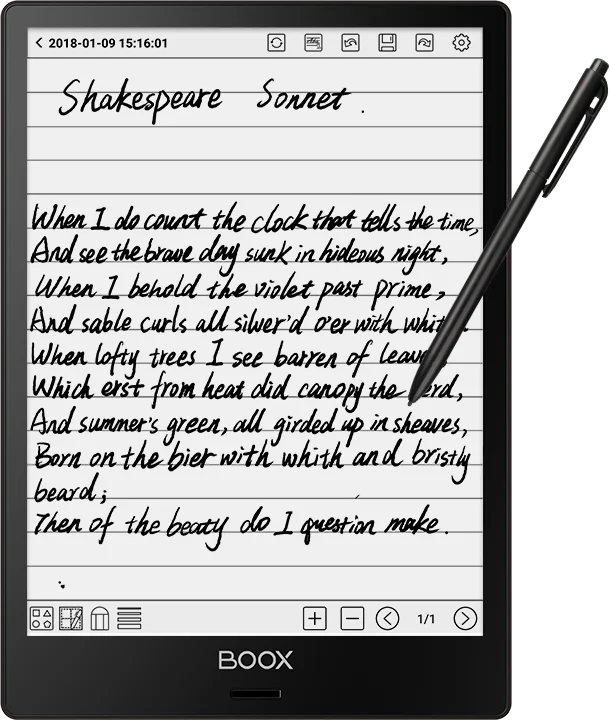 2018-01-09 15:16:01
Shakespeare Sonnet.
When I do count the clock that tells the time,
And see the brave day sunk in hideous night,
When I behold the violet past prime,
And sable curls all silver'd o'er with
When lofty trees I see barren of
Which erst from heat did canopy the
And summer's green, all girded up in sheaves,
Born on the bier with whith and bristly
beard;
Then of the beaty do I question make.
1/1
BOOX